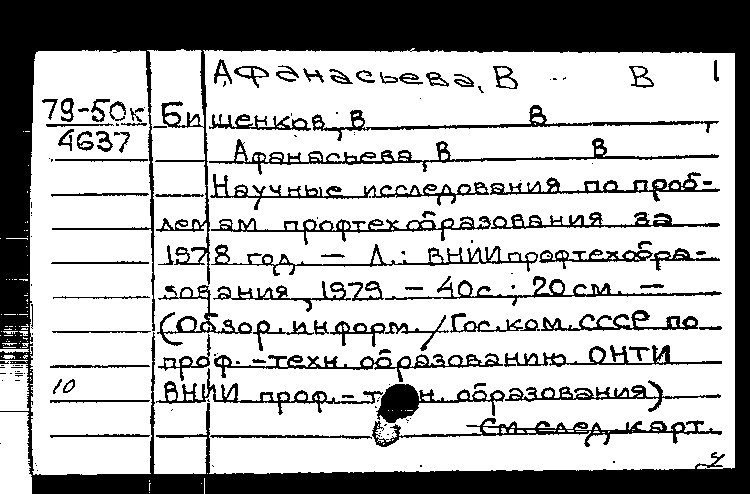 Афанасьева, В В 1
79-50к Бишенков, В В
4637 Афанасьева, В В
Научные исследования по проб-
лемам профтехобразования за
1978 год. — Л.: ВНИИпрофтехобра-
зования, 1979. — 40с.; 20см. —
(Обзор. информ. / Гос. ком. СССР по
проф.-техн. образованию. ОНТИ
10 ВНИИ проф.- образования)
См. след. карт.